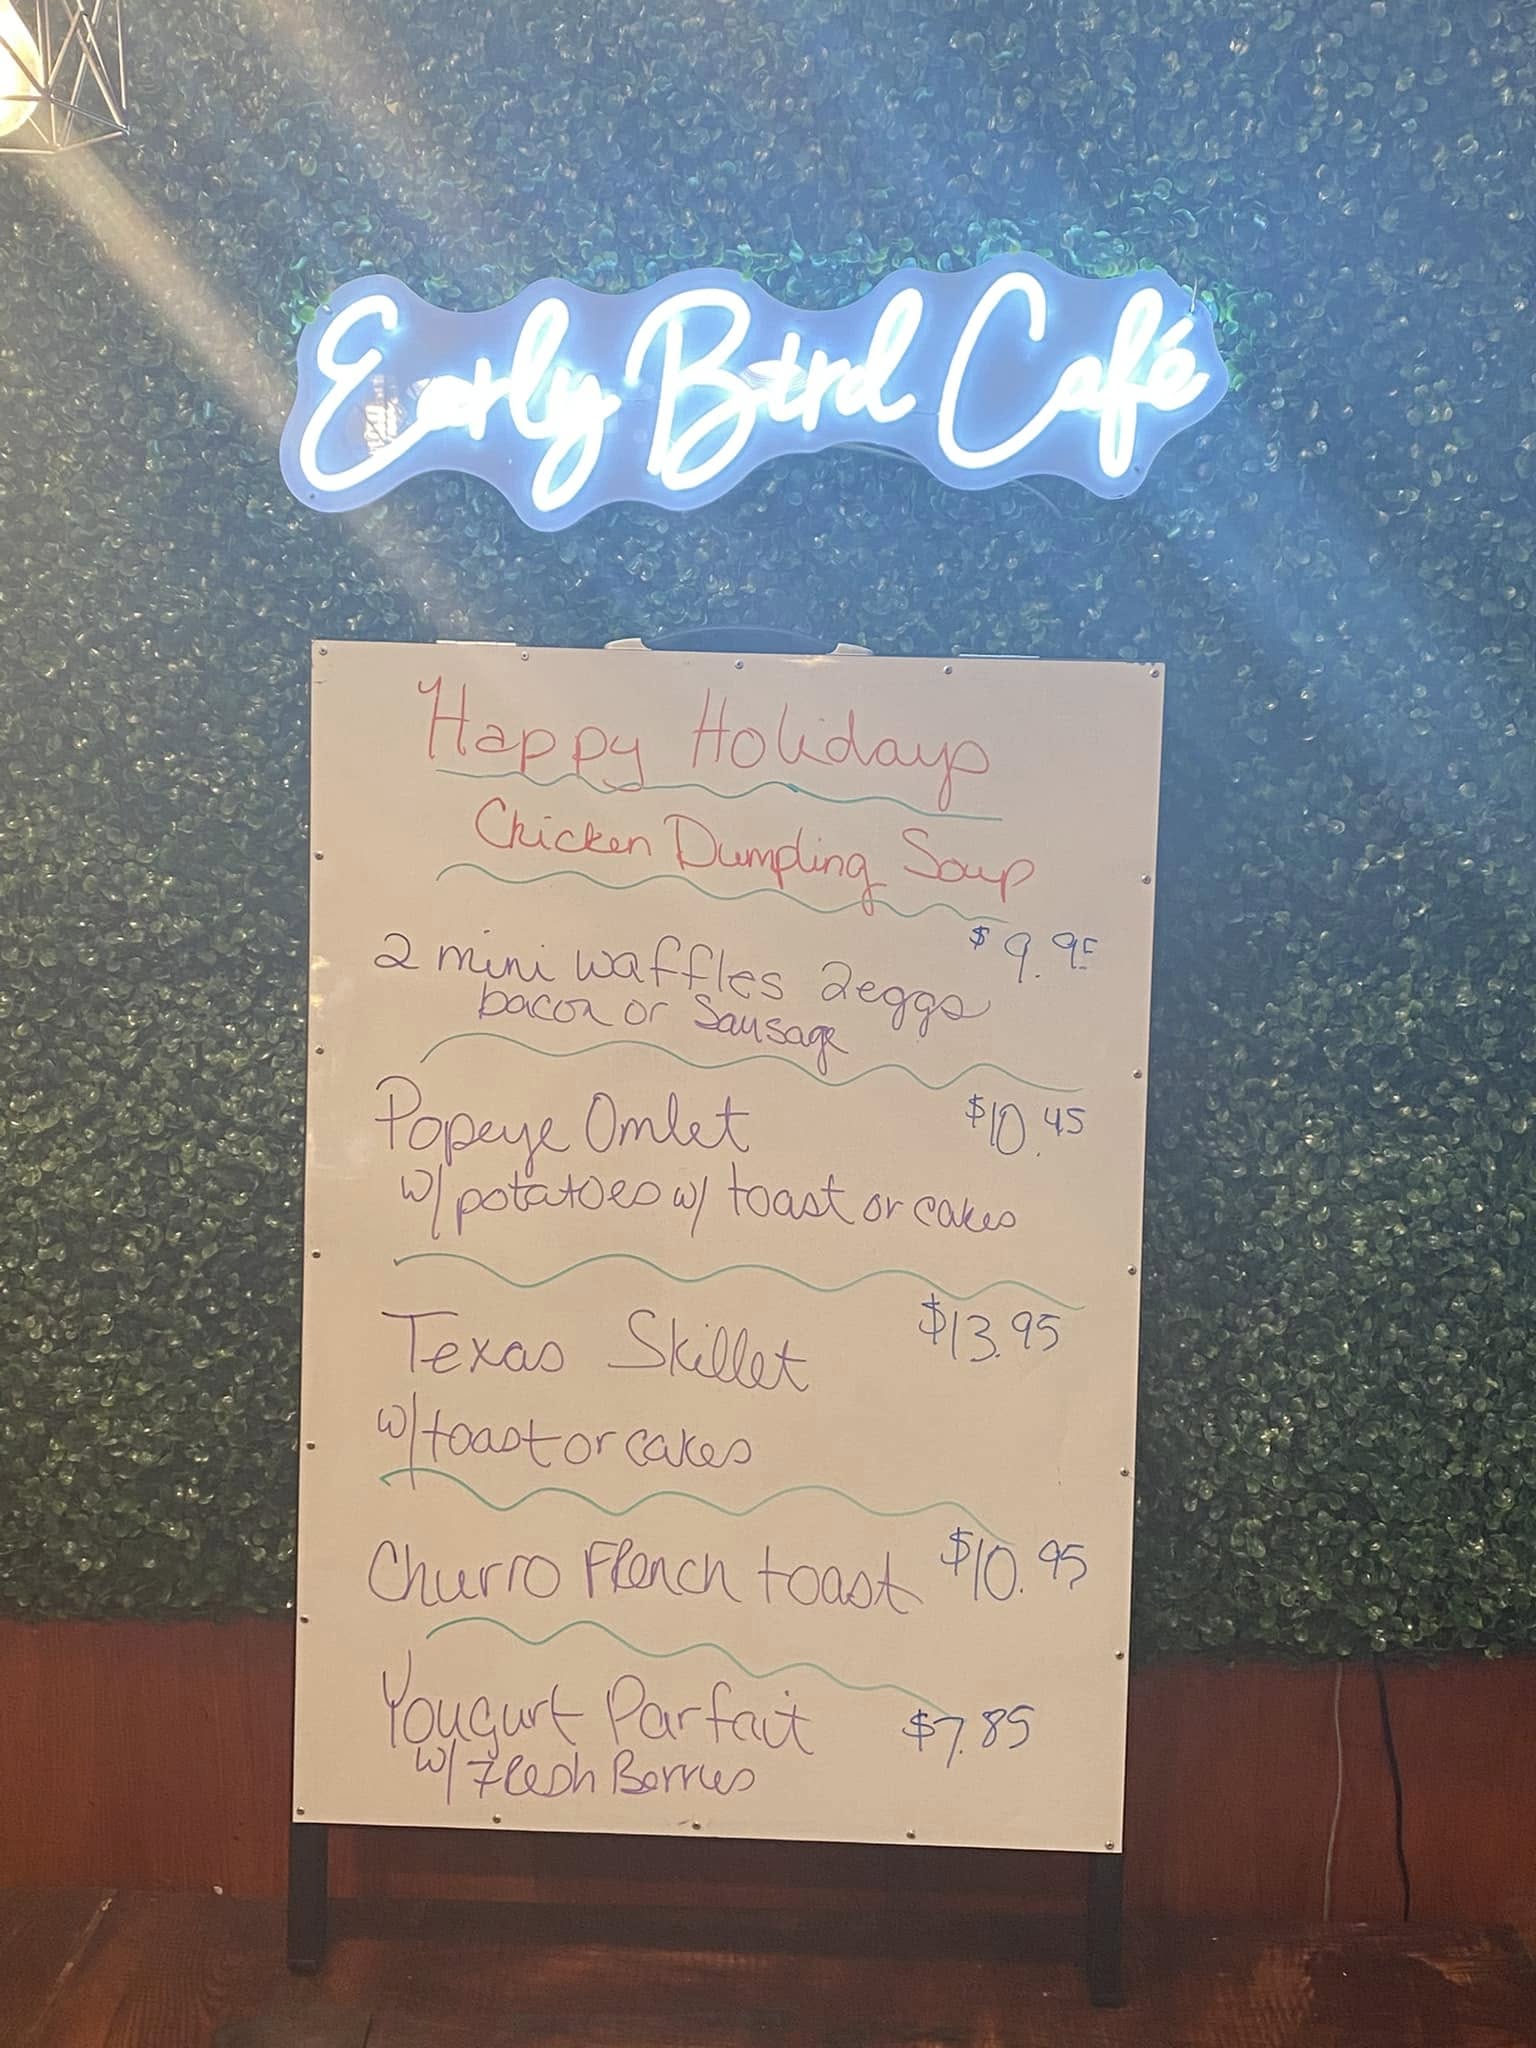 Early Bird Café
Happy Holidays
Chicken Dumpling Soup
2 mini waffles 2eggs $9.95
bacon or Sausage
Popeye Omlet $10.45
w/potatoes w/ toast or cakes
Texas Skillet $13.95
w/toast or cakes
Churro French toast $10.95
Yougurt Parfait $7.85
w/Fresh Berries